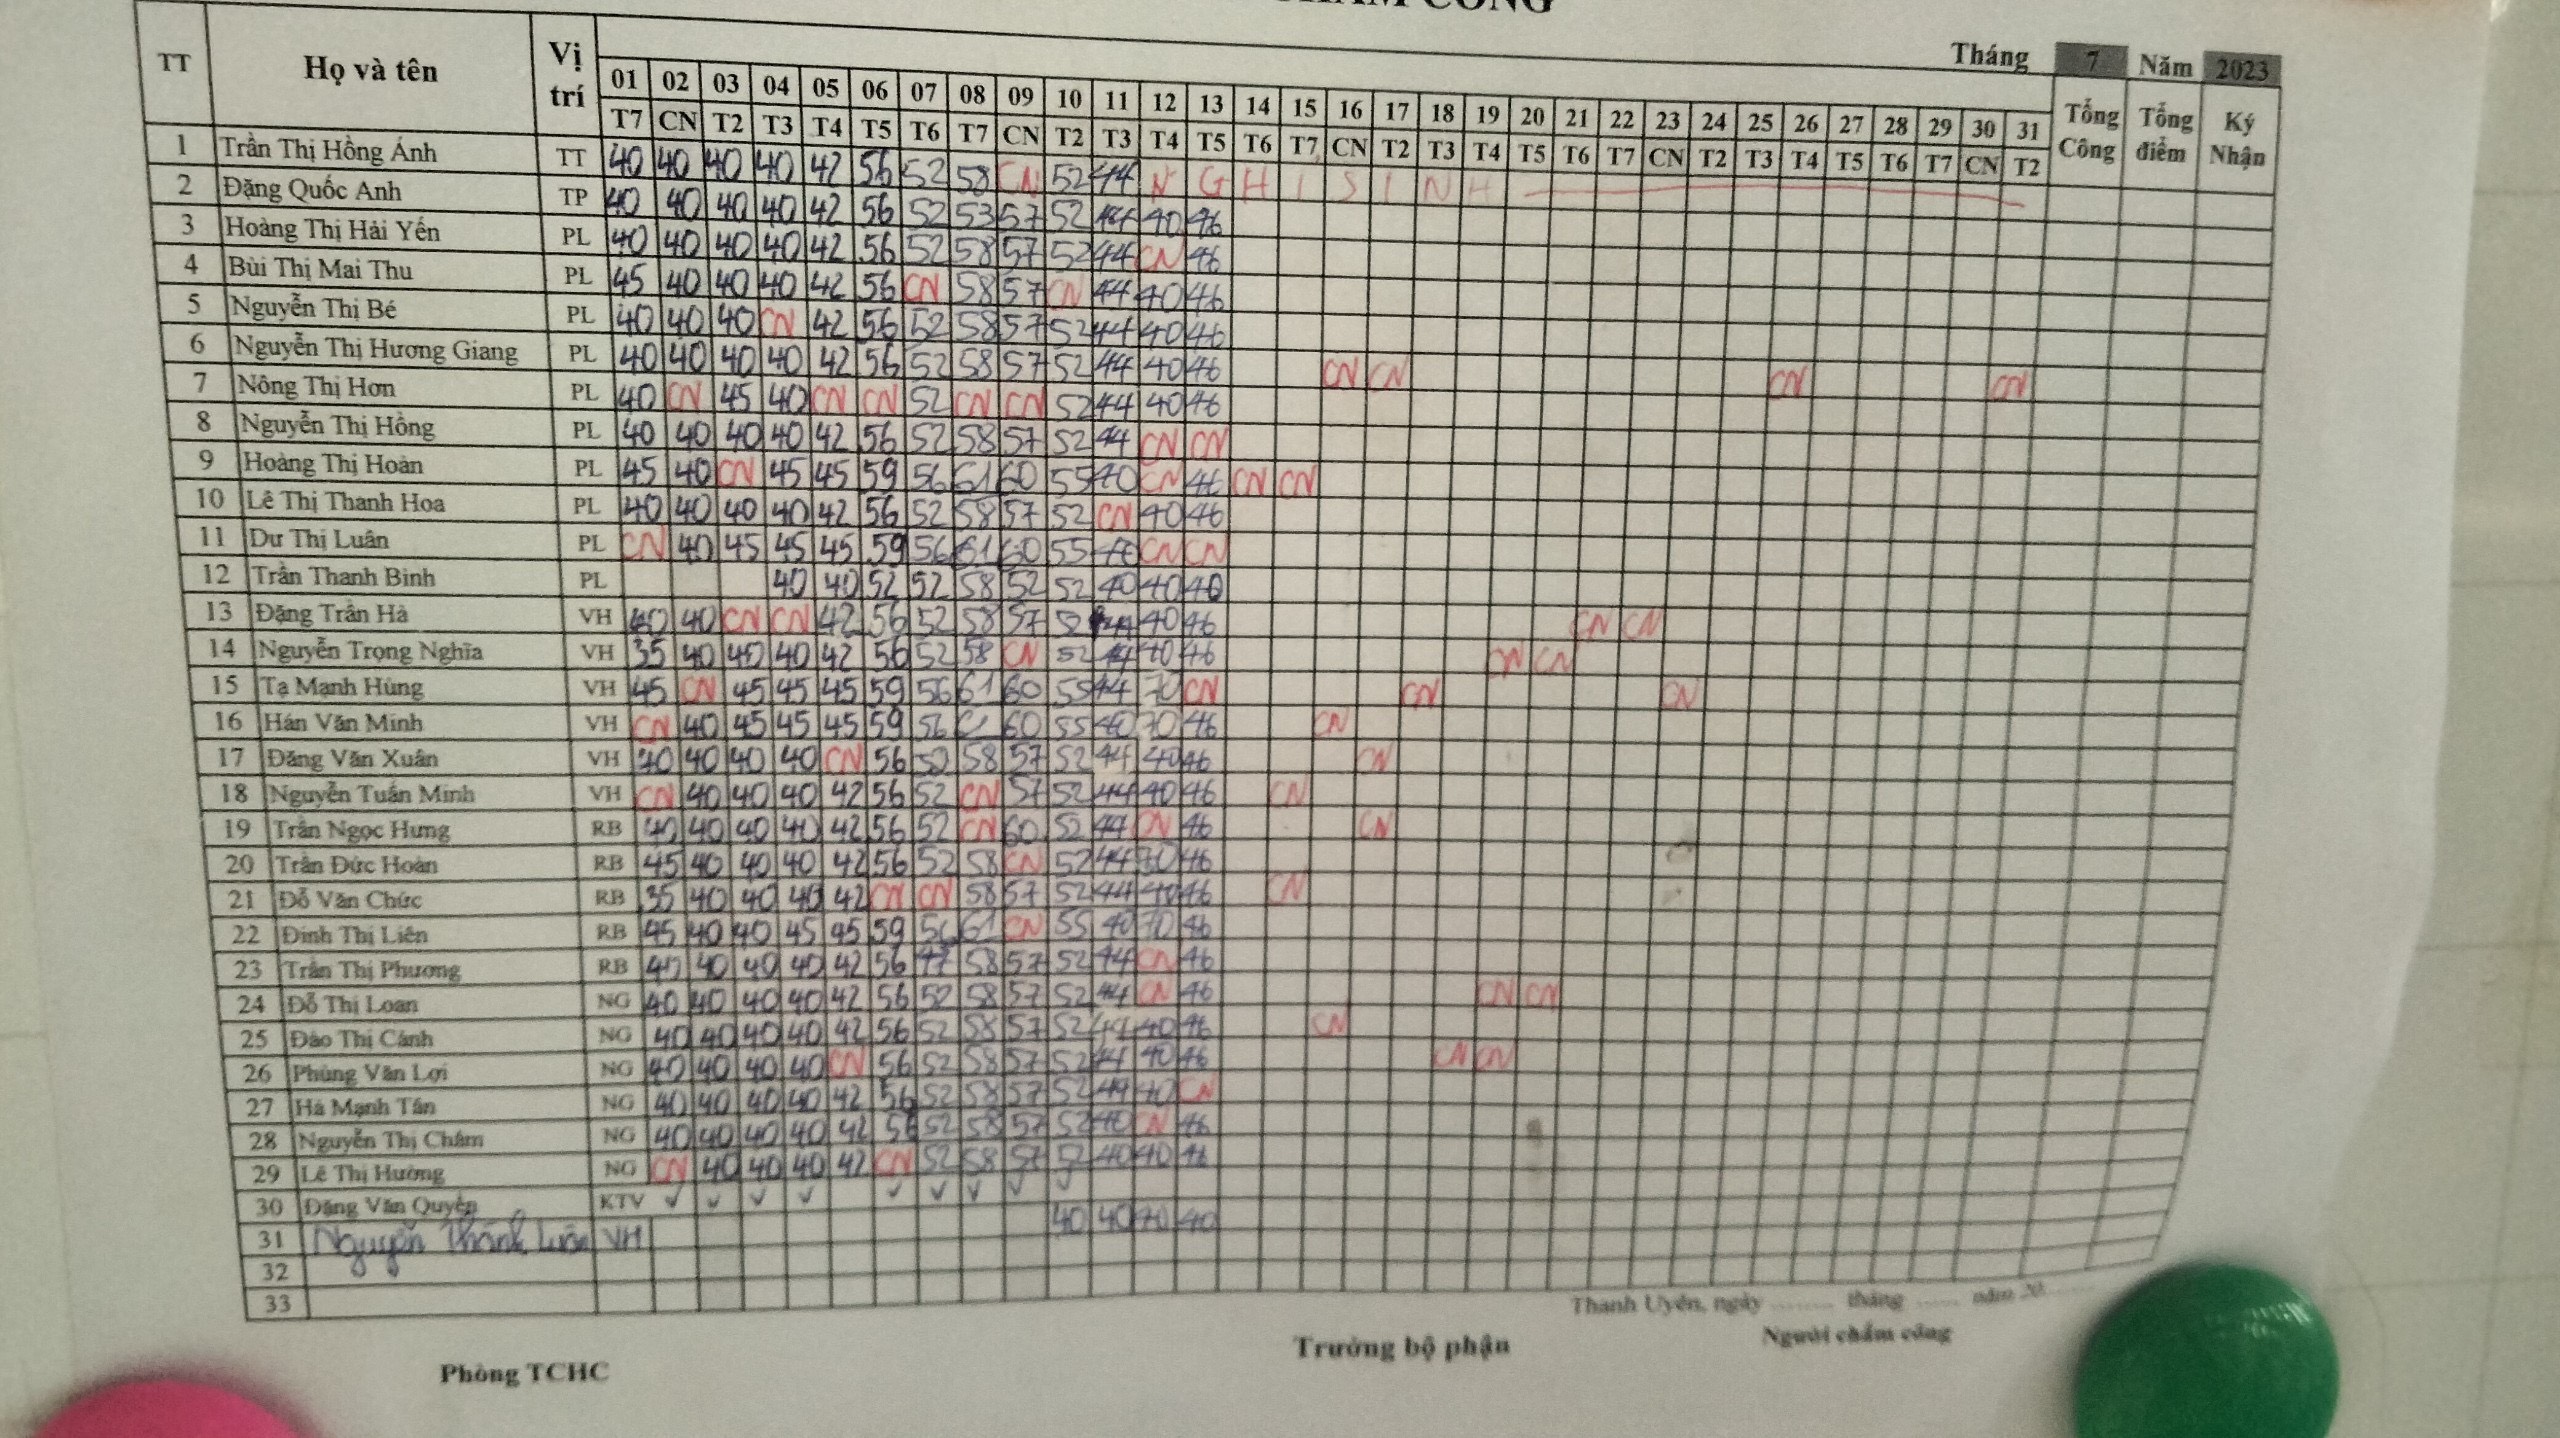 CHẤM CÔNG
Tháng 7 Năm 2023
TT Họ và tên Vị trí 01 02 03 04 05 06 07 08 09 10 11 12 13 14 15 16 17 18 19 20 21 22 23 24 25 26 27 28 29 30 31 Tổng Công Tổng điểm Ký Nhận
T7 CN T2 T3 T4 T5 T6 T7 CN T2 T3 T4 T5 T6 T7 CN T2 T3 T4 T5 T6 T7 CN T2 T3 T4 T5 T6 T7 CN T2
1 Trần Thị Hồng Ánh TT 40 40 40 40 42 56 52 58 CN 52 44 N G H I S I N H
2 Đặng Quốc Anh TP 40 40 40 40 42 56 52 53 57 52 44 40 46
3 Hoàng Thị Hải Yến PL 40 40 40 40 42 56 52 58 57 52 44 CN 46
4 Bùi Thị Mai Thu PL 45 40 40 40 42 56 CN 58 57 CN 44 40 46
5 Nguyễn Thị Bé PL 40 40 40 CN 42 56 52 58 57 52 44 40 46
6 Nguyễn Thị Hương Giang PL 40 40 40 40 42 56 52 58 57 52 44 40 46 CN CN CN CN
7 Nông Thị Hơn PL 40 CN 45 40 CN CN 52 CN CN 52 44 40 46
8 Nguyễn Thị Hồng PL 40 40 40 40 42 56 52 58 57 52 44 CN CN
9 Hoàng Thị Hoàn PL 45 40 CN 45 45 59 56 61 60 55 40 CN 46 CN CN
10 Lê Thị Thanh Hoa PL 40 40 40 40 42 56 52 58 57 52 CN 40 46
11 Dư Thị Luân PL CN 40 45 45 45 59 56 61 60 55 40 CN CN
12 Trần Thanh Bình PL 40 40 52 52 58 52 52 40 40 40
13 Đặng Trần Hà VH 40 40 CN CN 42 56 52 58 57 52 44 40 46 CN CN
14 Nguyễn Trọng Nghĩa VH 35 40 40 40 42 56 52 58 CN 52 44 40 46 CN CN
15 Tạ Mạnh Hùng VH 45 CN 45 45 45 59 56 61 60 55 44 70 CN CN CN
16 Hán Văn Minh VH CN 40 45 45 45 59 56 60 55 40 70 46 CN
17 Đăng Văn Xuân VH 40 40 40 40 CN 56 58 57 52 44 40 46 CN
18 Nguyễn Tuấn Minh VH CN 40 40 40 42 56 52 CN 57 52 44 40 46 CN
19 Trần Ngọc Hưng RB 40 40 40 40 42 56 52 CN 60 52 44 CN 46 CN
20 Trần Đức Hoàn RB 45 40 40 40 42 56 52 58 CN 52 44 70 46
21 Đỗ Văn Chức RB 35 40 40 40 42 CN CN 58 57 52 44 40 46 CN
22 Đinh Thị Liên RB 45 40 40 45 45 59 56 61 CN 55 40 70 46
23 Trần Thị Phương RB 40 40 40 40 42 56 47 58 57 52 44 CN 46
24 Đỗ Thị Loan NG 40 40 40 40 42 56 52 58 57 52 44 CN 46 CN CN
25 Đào Thị Cảnh NG 40 40 40 40 42 56 52 58 57 52 44 40 46 CN
26 Phùng Văn Lợi NG 40 40 40 40 CN 56 52 58 57 52 44 40 46 CN CN
27 Hà Mạnh Tân NG 40 40 40 40 42 56 52 58 57 52 44 40 CN
28 Nguyễn Thị Chắm NG 40 40 40 40 42 56 52 58 57 52 40 CN 46
29 Lê Thị Hường NG CN 40 40 40 42 CN 52 58 57 52 40 40 46
30 Đặng Văn Quyền KTV ✓ ✓ ✓ ✓ ✓ ✓ ✓ ✓ ✓
31 Nguyễn Thành Luân VH 40 40 70 40
32
33
Thanh Uyên, ngày ......... tháng ...... năm 20
Phòng TCHC Trưởng bộ phận Người chấm công